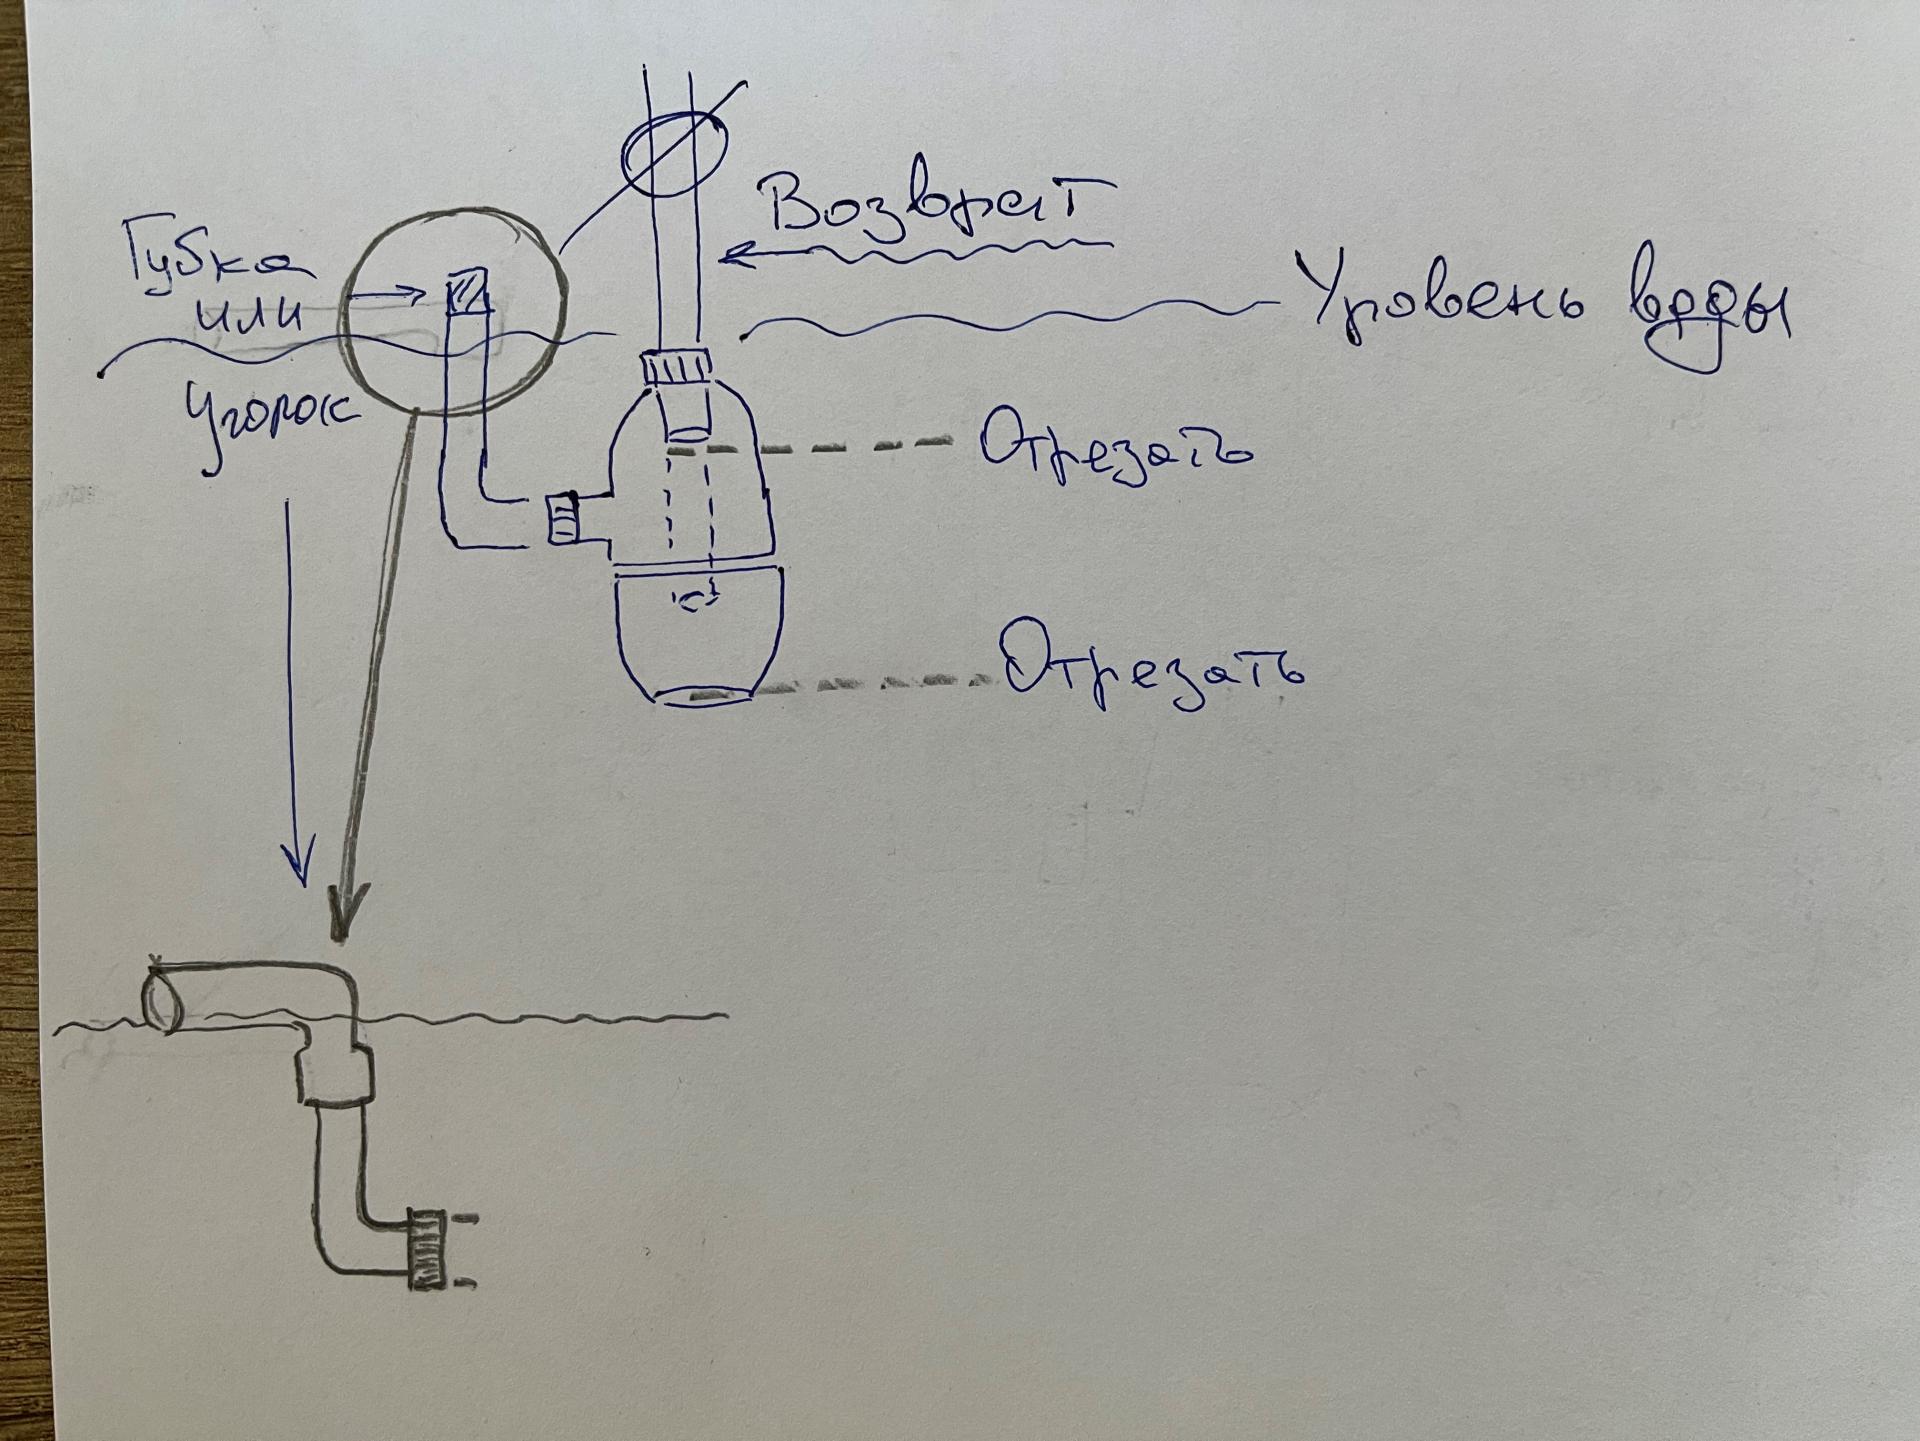 Возврат
Губка
или
Уровень воды
Уголок
Отрезать
Отрезать